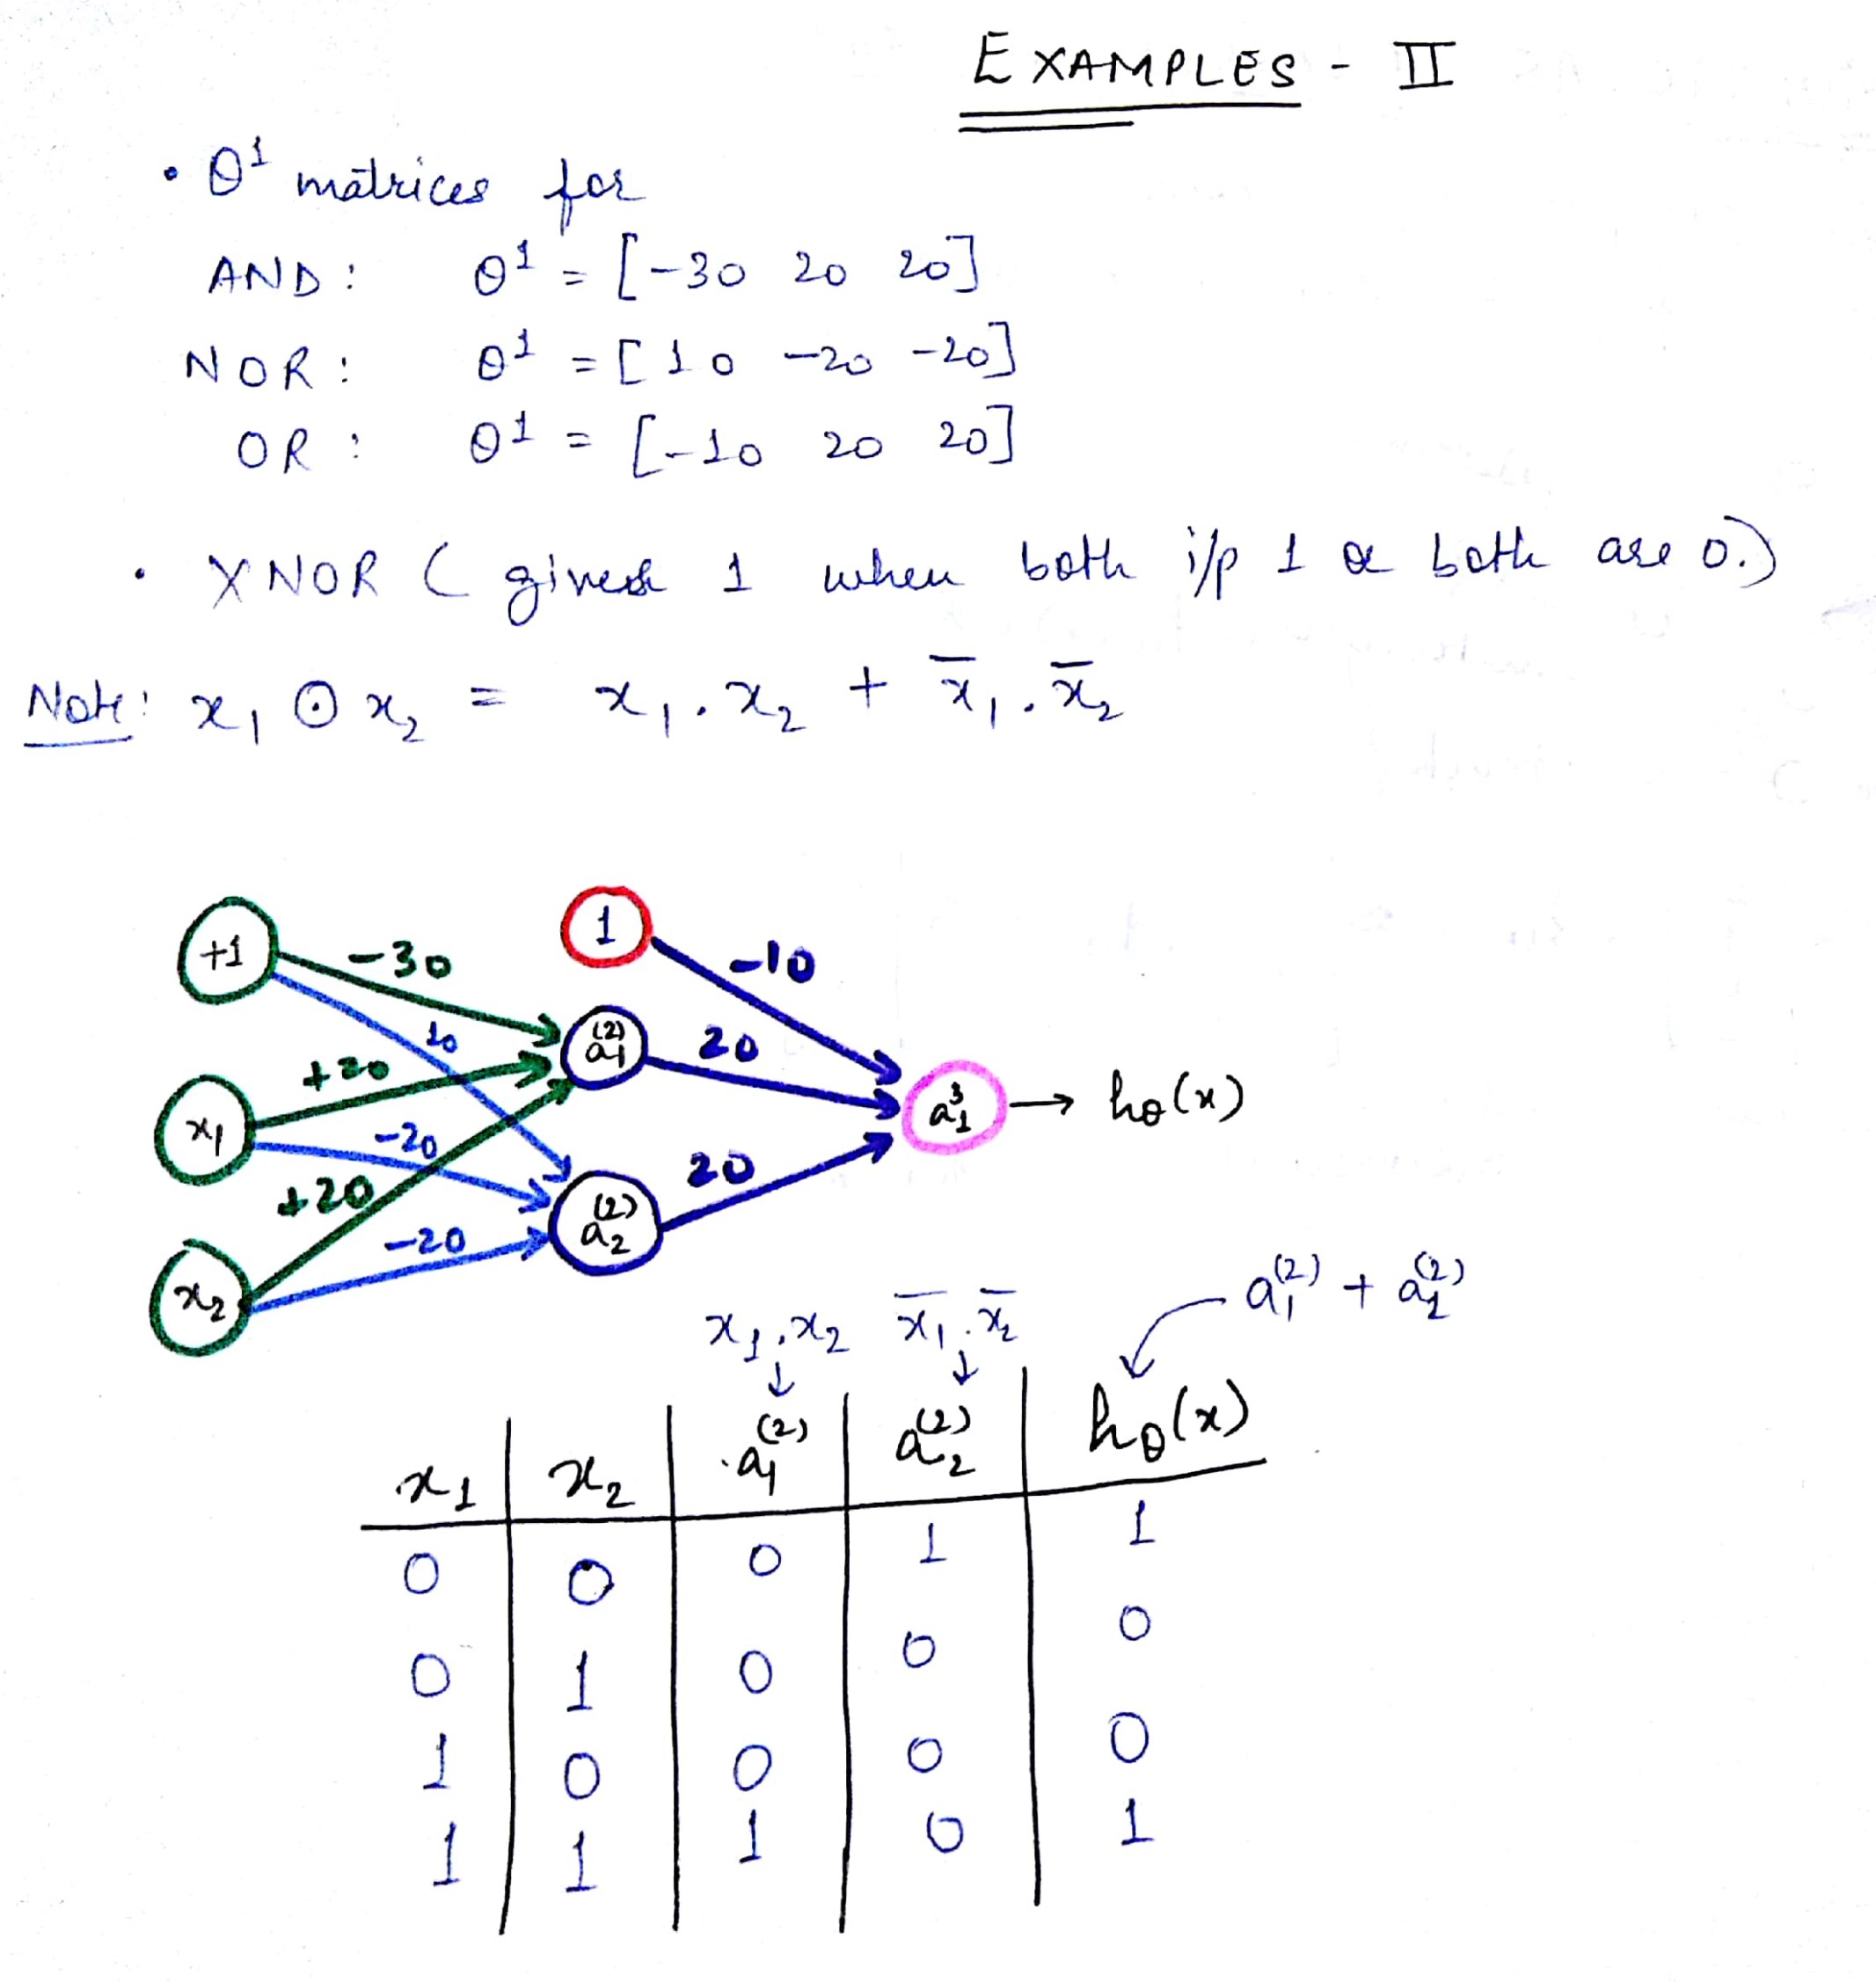 EXAMPLES - II
• θ¹ matrices for
AND : θ¹ = [-30 20 20]
NOR : θ¹ = [10 -20 -20]
OR : θ¹ = [-10 20 20]
• XNOR ( gives 1 when both i/p 1 or both are 0.)
Note: x₁ ⊙ x₂ = x₁ . x₂ + x̄₁ . x̄₂
+1 -30 1 -10
10 a₁⁽²⁾ 20
+20
x₁ -20 a₁³ → hθ(x)
+20 20
-20 a₂⁽²⁾
x₂
a₁⁽²⁾ + a₂⁽²⁾
x₁.x₂ x̄₁.x̄₂
↓ ↓
x₁ x₂ a₁⁽²⁾ a₂⁽²⁾ hθ(x)
0 0 0 1 1
0 1 0 0 0
1 0 0 0 0
1 1 1 0 1